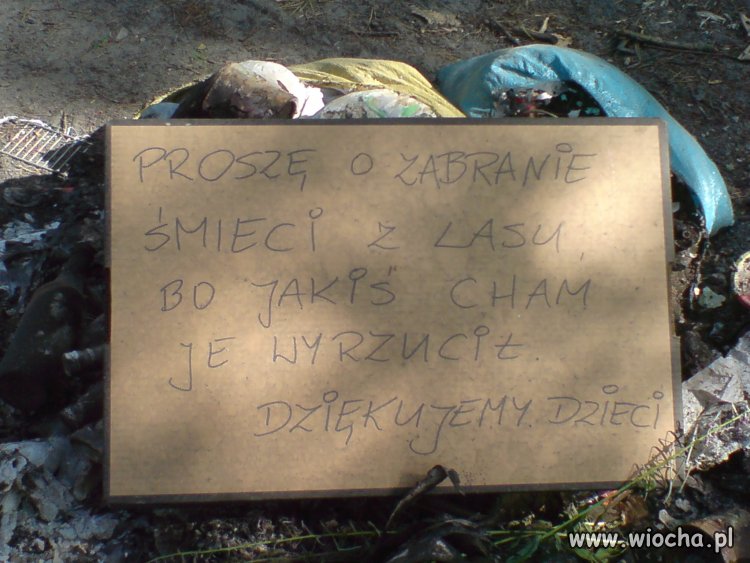 PROSZĘ O ZABRANIE
ŚMIECI Z LASU,
BO JAKIŚ CHAM
JE WYRZUCIŁ.
DZIĘKUJEMY. DZIECI
www.wiocha.pl